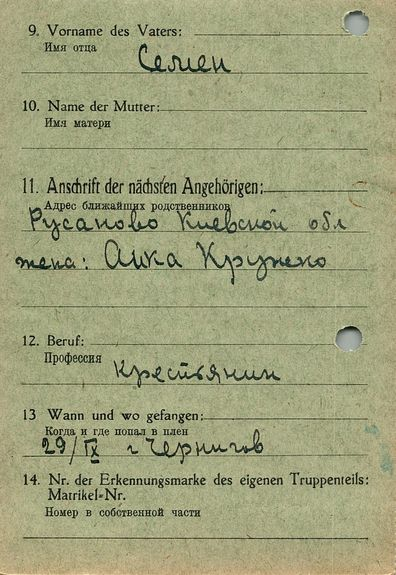 9. Vorname des Vaters:
Имя отца
Семен
10. Name der Mutter:
Имя матери
11. Anschrift der nächsten Angehörigen:
Адрес ближайших родственников
Русаново Киевской обл
жена:
12. Beruf:
Профессия
крестьянин
13 Wann und wo gefangen:
Когда и где попал в плен
29/IX г Чернигов
14. Nr. der Erkennungsmarke des eigenen Truppenteils:
Matrikel-Nr.
Номер в собственной части